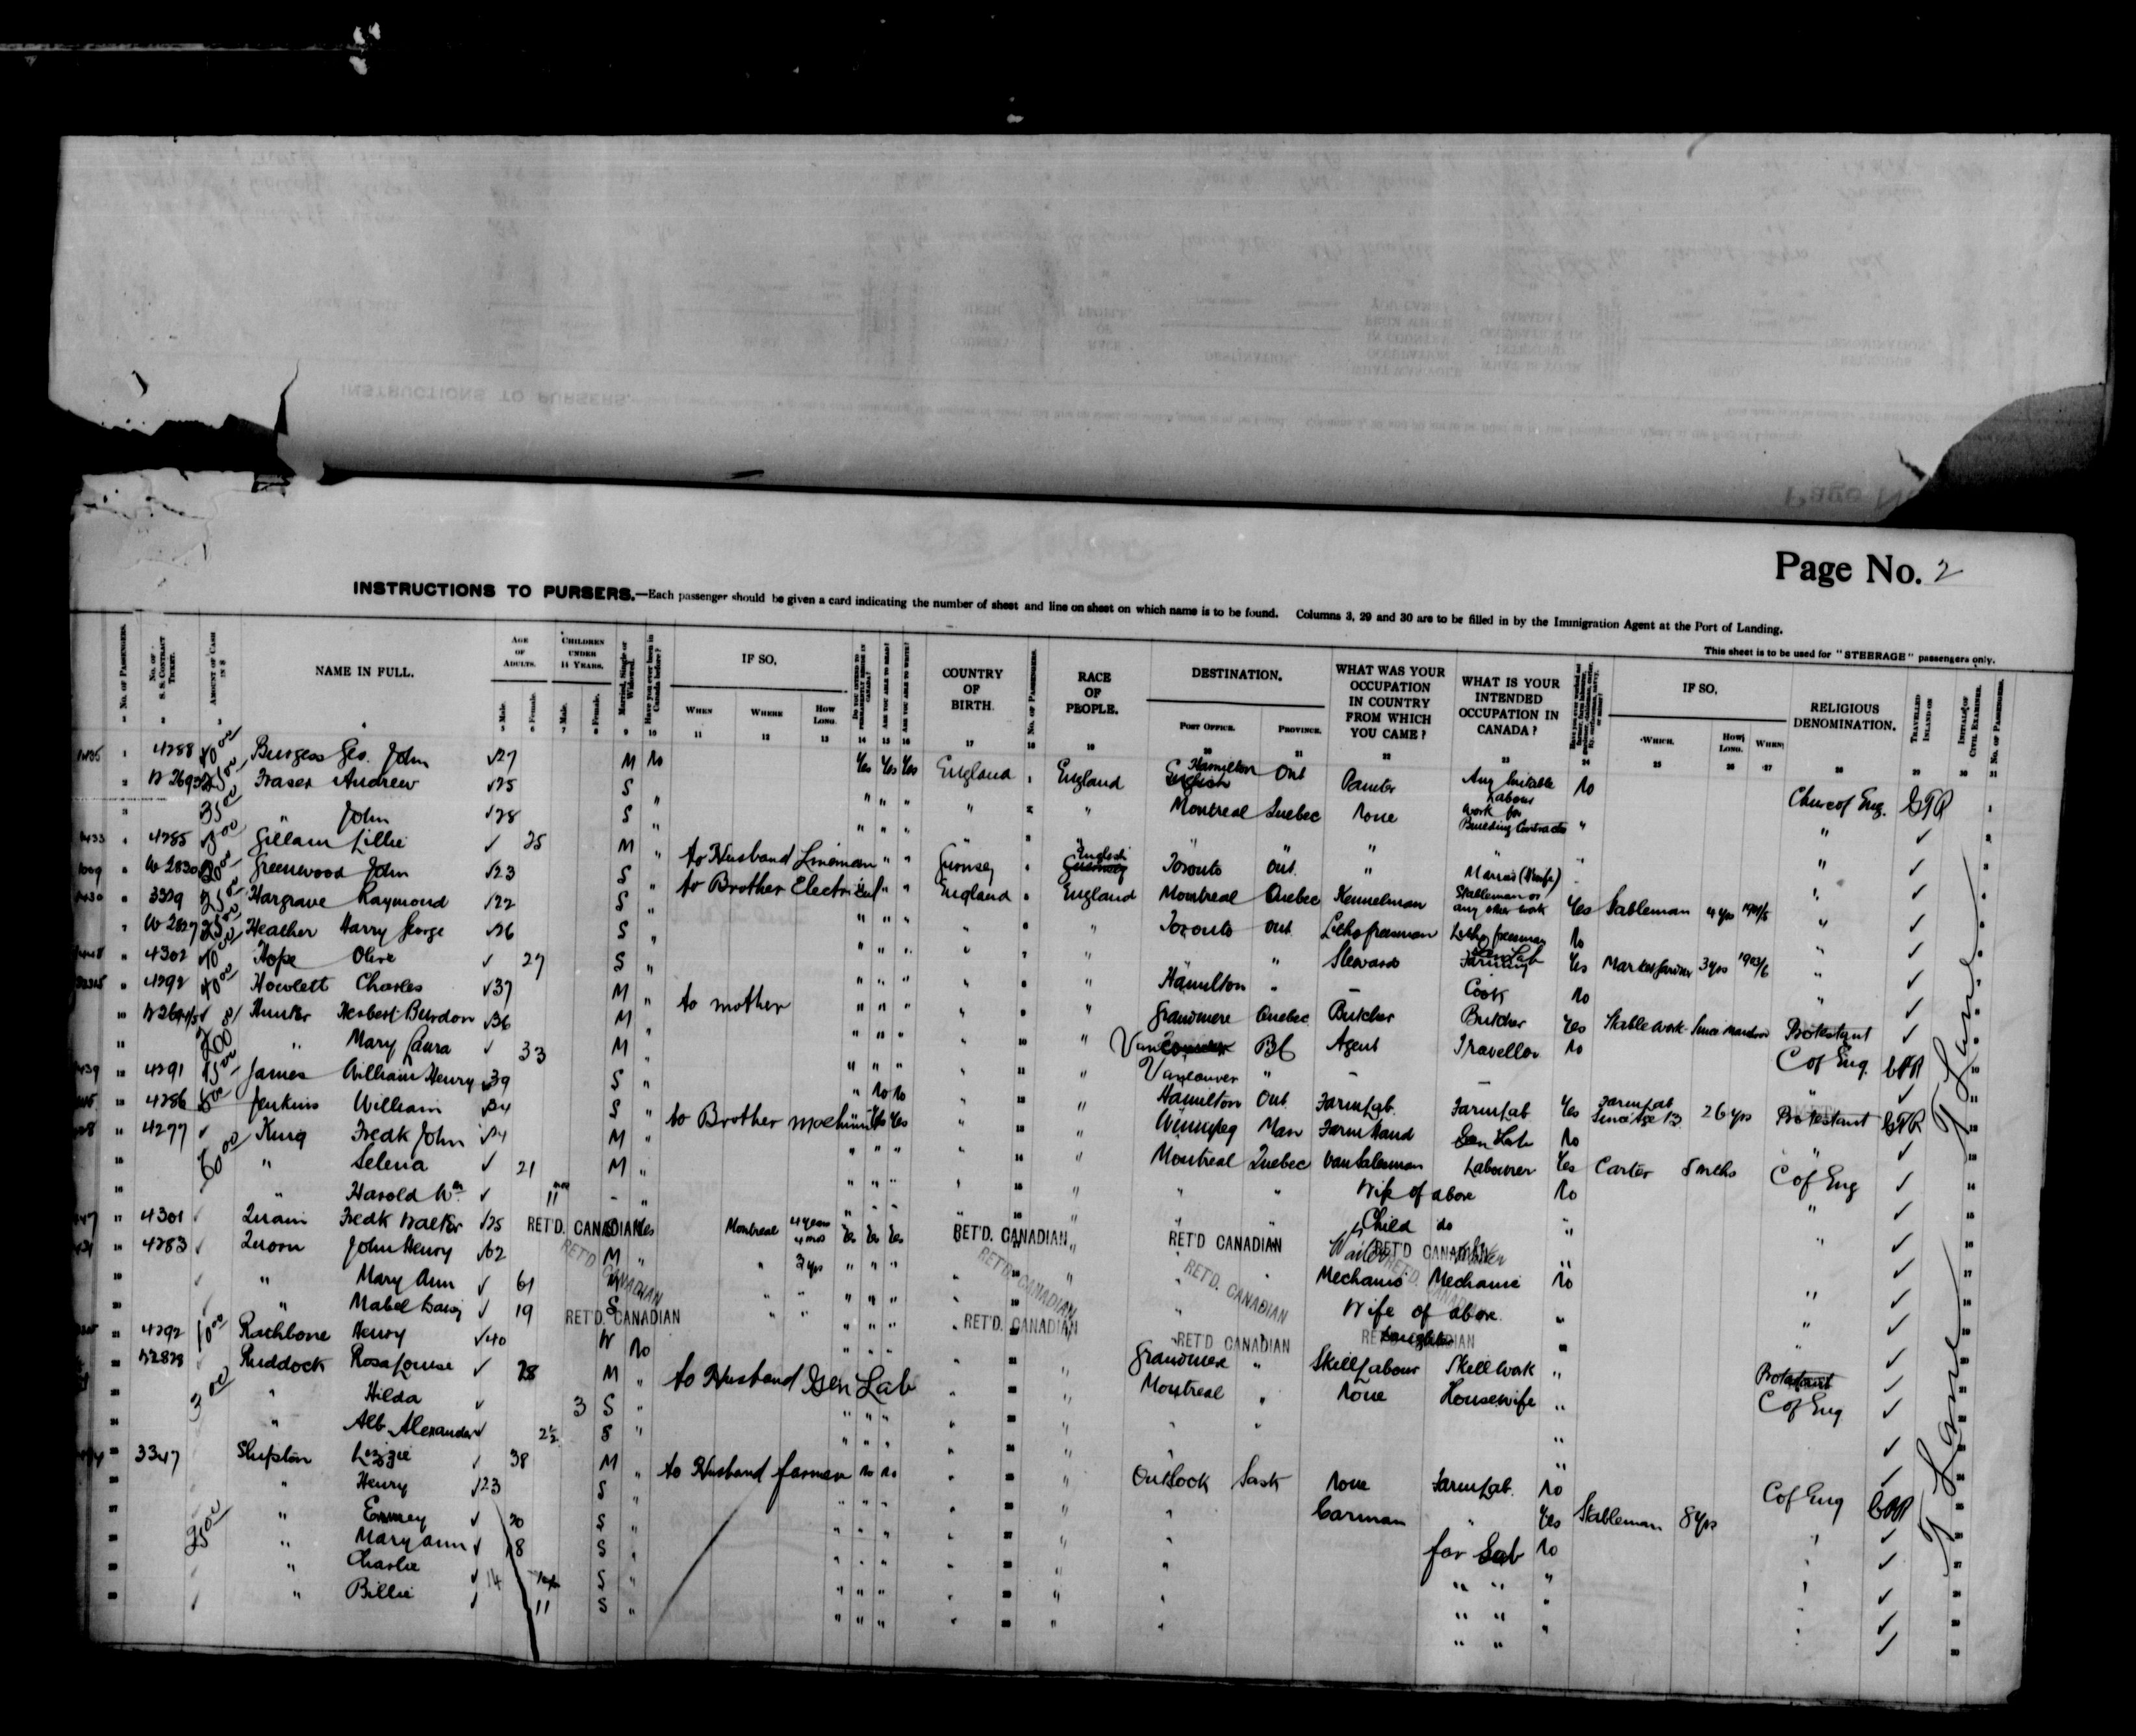 Page No. 2
INSTRUCTIONS TO PURSERS.—Each passenger should be given a card indicating the number of sheet and line on sheet on which name is to be found. Columns 3, 29 and 30 are to be filled in by the Immigration Agent at the Port of Landing.
This sheet is to be used for "STEERAGE" passengers only.
No. of Passengers. No. of S. S. Contract Ticket. Amount of Cash in $ NAME IN FULL. Age of Adults. Children under 14 Years. Married, Single or Widowed. Have you ever been in Canada before? IF SO, Do you intend to permanently reside in Canada? Are you able to read? Are you able to write? COUNTRY OF BIRTH. No. of Passengers. RACE OF PEOPLE. DESTINATION. WHAT WAS YOUR OCCUPATION IN COUNTRY FROM WHICH YOU CAME? WHAT IS YOUR INTENDED OCCUPATION IN CANADA? IF SO, RELIGIOUS DENOMINATION. Travelled Inland on Initials of Civil Examiner. No. of Passengers.
Male. Female. Male. Female. When Where How Long. Post Office. Province. Which. How Long. When
1 4288 Burgess Geo. John 27 M No Yes Yes Yes England England Hamilton Ont Painter Any Suitable Labour No Church of Eng. GTR
2 Fraser Andrew 25 S " " " " " " Montreal Quebec None Work for Building Contractor " " ✓
3 " John 28 S " " " " " " " " " " " " ✓
4 4285 Gillam Lillie 25 M " to Husband Lineman " " Guernsey English Toronto Ont. " " ✓
5 W 2830 Greenwood John 23 S " to Brother Electrical " " England England Montreal Quebec Kennelman Stableman or any other work Yes Stableman 4 yrs " ✓
6 3329 Hargrave Raymond 22 S " " " " " " Toronto Ont No " ✓
7 W 2827 Heather Harry George 26 S " " " " " " " " Steward Yes Market Gardner 3 yrs 1903/6 " ✓
8 4302 Hope Olive 27 S " " " " " " Hamilton " – Cook No " ✓
9 4292 Howlett Charles 37 M " to mother " " " " " Grandmere Quebec Butcher Butcher Yes Stable work Protestant ✓
10 Hunter Herbert Burdon 36 M " " " " " " Vancouver BC Agent Traveller No C of Eng. CPR
11 " Mary Laura 33 M " " " " " " Vancouver " – – ✓
12 4291 James William Henry 39 S " " No No " " Hamilton Ont. Farm Lab. Farm Lab Yes Farm Lab Since age 13 26 yrs Protestant GTR
13 4286 Jenkins William 34 S " to Brother Yes Yes " " Winnipeg Man Farm Hand Gen Lab No " ✓
14 4277 King Fredk John M " " " " " " Montreal Quebec Van Salesman Labourer Yes Carter 5 mths C of Eng ✓
15 60 00 " Selena 21 M " " " " " " " " Wife of above No " ✓
16 " Harold Wm 11 mos - " " " " " " " " Child do " " ✓
17 4301 Quain Fredk Walter 25 RET'D. CANADIAN Yes Montreal 4 years 4 mos Yes Yes Yes RET'D. CANADIAN " RET'D CANADIAN RET'D CANADIAN " ✓
18 4283 Quorn John Henry 62 RET'D CANADIAN M " " 3 yrs " " " RET'D. CANADIAN " RET'D. CANADIAN Mechanic Mechanic No " ✓
19 " Mary Ann 61 " " " " " " " " Wife of above " " ✓
20 " Mabel 19 RET'D. CANADIAN S " " " " " RET'D. CANADIAN RET'D CANADIAN Daughter " " ✓
21 4292 10 00 Rathbone Henry 40 W No " " " " " Grandmere " Skill Labour Skill Work " Protestant ✓
22 Ruddock Rosa Louise 28 M " to Husband Gen Lab " " Montreal " None Housewife " C of Eng ✓
23 3 00 " Hilda 3 S " " " " " " " " ✓
24 " Alb Alexander 2½ S " " " " " " " " ✓
25 3347 Shipston Lizzie 38 M " to Husband farmer No No " " Outlook Sask None Farm Lab. No C of Eng CPR
26 " Henry 23 S " " " " " " " Carman " Yes Stableman 8 yrs " ✓
27 25 00 " Emmey 20 S " " " " " " " far Lab No " ✓
28 " Mary Ann 18 S " " " " " " " " " " " ✓
29 " Charlie 14 S " " " " " " " " " " " ✓
30 " Billie 11 S " " " " " " " " " " ✓